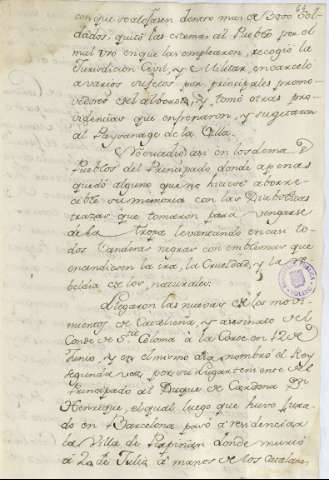 64
con que se alojasen dentro mas de 3000 Sol-
dados, quitó las armas al Pueblo por el
mal uso en que las emplearon, recogió la
Jurisdicion Civil, y Militar, encarceló
a varios sujetos por principales promo-
vedores del alboroto, y tomó otras pro-
videncias que enfrenaron, y sugetaron
al Paysanage de la Villa.
No sucedió asi en los demas
Pueblos del Principado donde apenas
quedó alguno que no hiciese aborre-
cible su memoria con las Diabolicas
trazas que tomaron para vengarse
de la Tropa levantando en ca to-
dos Vanderas negras con emblemas que
encendieron la ira, la Crueldad, y la re-
beldia de los naturales.
Llegaron las nuevas de los mo-
mientos de Cataluña, y asesinato del
Conde de S.ta Coloma à la Corte en 12 de
Junio, y en el mismo dia nombró el Rey
segunda vez por su lugarteniente del
Principado al Duque de Cardona Dn
Henrique, el qual luego que huvo jura-
do en Barcelona pasó à residenciar
la Villa de Perpiñan donde murió
à 22 de Julio à manos de los Catalan